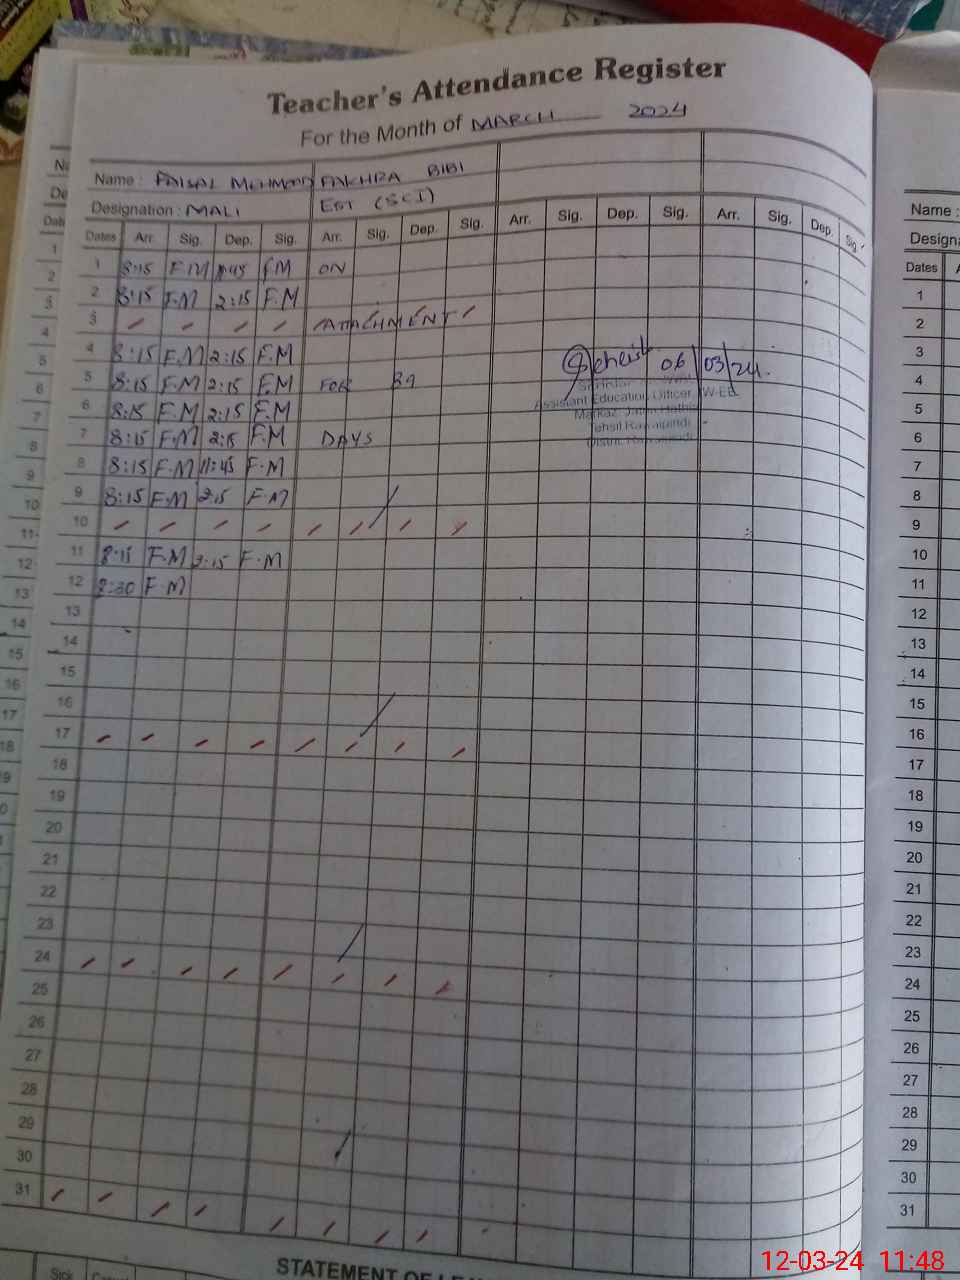 Teacher's Attendance Register
For the Month of MARCH 2024
Name : FAISAL MEHMOOD FAKHRA BIBI
Designation : MALI EST (SCI)
Dates Arr. Sig. Dep. Sig. Arr. Sig. Dep. Sig. Arr. Sig. Dep. Sig. Arr. Sig. Dep. Sig.
1 8:15 F.M 11:45 F.M ON
2 8:15 F.M 2:15 F.M
3 ATTACHMENT
4 8:15 F.M 2:15 F.M
5 8:15 F.M 2:15 F.M FOR 89
6 8:15 F.M 2:15 F.M
7 8:15 F.M 2:15 F.M DAYS
8 8:15 F.M 11:45 F.M
9 8:15 F.M 2:15 F.M
10
11 8:15 F.M 2:15 F.M
12 8:30 F.M
13
14
15
16
17
18
19
20
21
22
23
24
25
26
27
28
29
30
31
06/03/24.
Assistant Education Officer (W-EE
Markaz
Tehsil Rawalpindi
Distt. Rawalpindi
STATEMENT OF
Sick
Name :
Dates
1
2
3
4
5
6
7
8
9
10
11
12
13
14
15
16
17
18
19
20
21
22
23
24
25
26
27
28
29
30
31
12-03-24 11:48